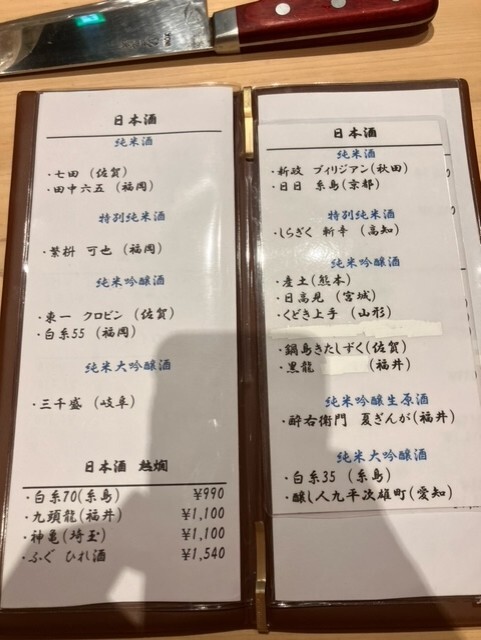 日本酒
純米酒
・七田 (佐賀)
・田中六五 (福岡)
特別純米酒
・繁桝 可也 (福岡)
純米吟醸酒
・東一 クロビン (佐賀)
・白糸55 (福岡)
純米大吟醸酒
・三千盛 (岐阜)
日本酒 熱燗
・白糸70(糸島) ¥990
・九頭龍(福井) ¥1,100
・神亀(埼玉) ¥1,100
・ふぐ ひれ酒 ¥1,540
日本酒
純米酒
・新政 ヴィリジアン(秋田)
・日日 糸島(京都)
特別純米酒
・しらぎく 新幸 (高知)
純米吟醸酒
・産土(熊本)
・日高見 (宮城)
・くどき上手 (山形)
・鍋島きたしずく(佐賀)
・黒龍 (福井)
純米吟醸生原酒
・酔右衛門 夏ぎんが(福井)
純米大吟醸酒
・白糸35 (糸島)
・醸し人九平次雄町(愛知)